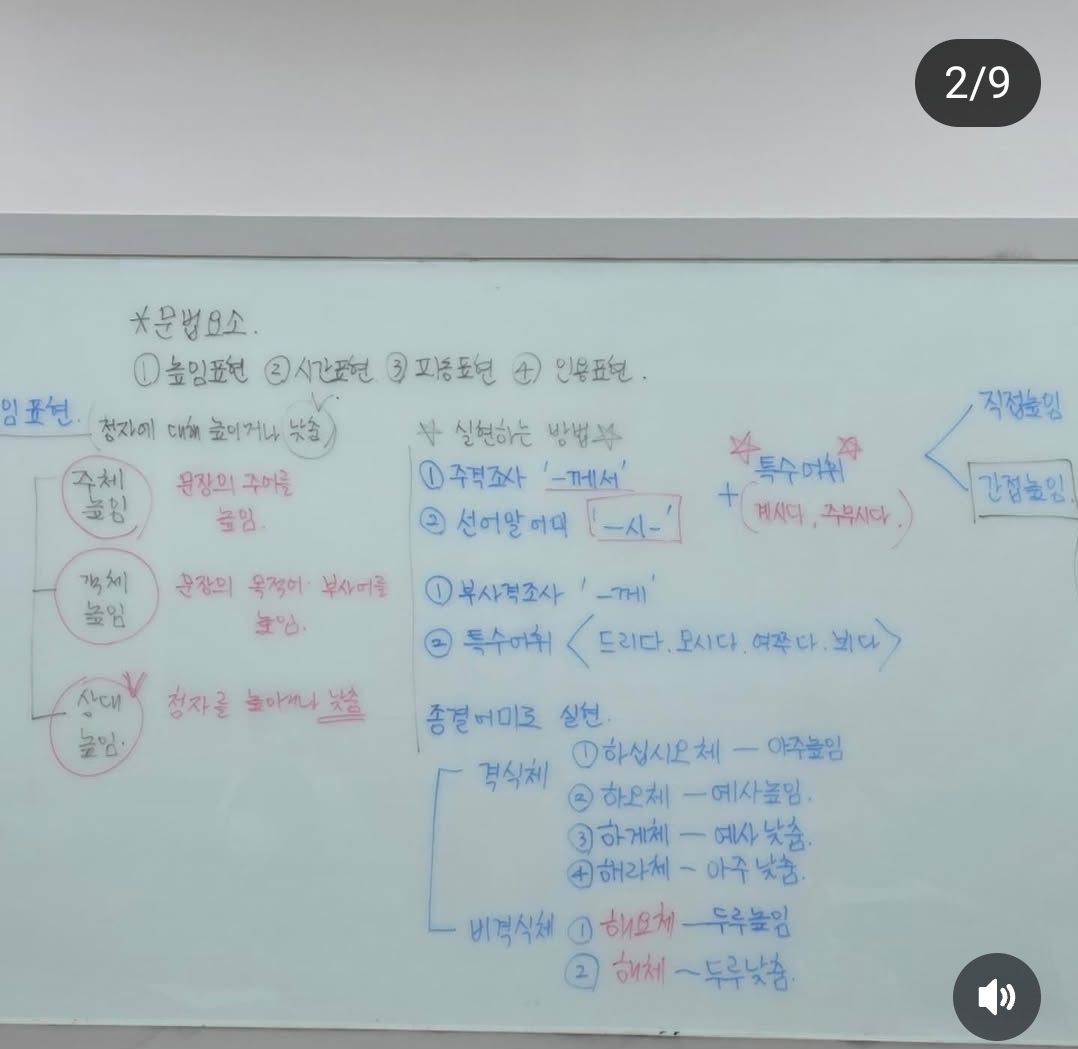 2/9
*문법요소.
①높임표현 ②시간표현 ③피동표현 ④ 인용표현.
임표현. (청자에 대해 높이거나 낮춤)
☆ 실현하는 방법☆
주체
높임
문장의 주어를
높임.
① 주격조사 '-께서'
② 선어말 어미 '-시-'
+
☆특수어휘☆
(계시다, 주무시다.)
직접높임
간접높임.
객체
높임
문장의 목적어· 부사어를
높임.
① 부사격조사 '-께'
② 특수어휘 <드리다. 모시다. 여쭈다. 뵈다>
상대
높임.
청자를 높이거나 낮춤
종결어미로 실현.
격식체
① 하십시오체 — 아주높임
② 하오체 — 예사높임.
③ 하게체 — 예사 낮춤.
④ 해라체 - 아주 낮춤.
비격식체
① 해요체 — 두루높임
② 해체 ~ 두루낮춤.